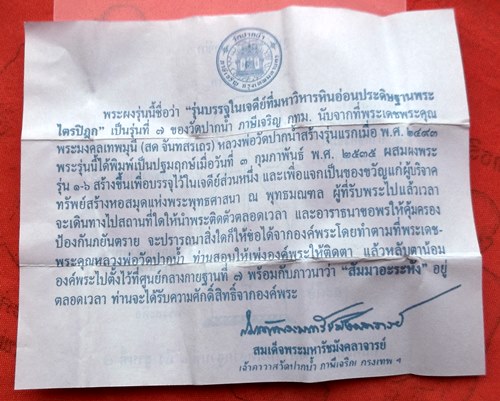 วัดปากน้ำ
พระผงรุ่นนี้ชื่อว่า "รุ่นบรรจุในเจดีย์ที่มหาวิหารหินอ่อนประดิษฐานพระ
ไตรปิฎก" เป็นรุ่นที่ ๗ ของวัดปากน้ำ ภาษีเจริญ กทม. นับจากที่พระเดชพระคุณ
พระมงคลเทพมุนี (สด จันทสรเถร) หลวงพ่อวัดปากน้ำสร้างรุ่นแรกเมื่อ พ.ศ. ๒๔๙๓
พระรุ่นนี้ได้พิมพ์เป็นปฐมฤกษ์เมื่อวันที่ ๓ กุมภาพันธ์ พ.ศ. ๒๕๓๕ ผสมผงพระ
รุ่น ๑-๖ สร้างขึ้นเพื่อบรรจุไว้ในเจดีย์ส่วนหนึ่ง และเพื่อแจกเป็นของขวัญแก่ผู้บริจาค
ทรัพย์สร้างหอสมุดแห่งพระพุทธศาสนา ณ พุทธมณฑล ผู้ที่รับพระไปแล้วเวลา
จะเดินทางไปสถานที่ใดให้นำพระติดตัวตลอดเวลา และอาราธนาขอพรให้คุ้มครอง
ป้องกันภยันตราย จะปรารถนาสิ่งใดก็ให้ขอได้จากองค์พระโดยทำตามที่พระเดช-
พระคุณหลวงพ่อวัดปากน้ำ ท่านสอนให้เพ่งองค์พระให้ติดตา แล้วหลับตาน้อม
องค์พระไปตั้งไว้ที่ศูนย์กลางกายฐานที่ ๗ พร้อมกับภาวนาว่า "สัมมาอะระหัง" อยู่
ตลอดเวลา ท่านจะได้รับความศักดิ์สิทธิ์จากองค์พระ
สมเด็จพระมหารัชมังคลาจารย์
สมเด็จพระมหารัชมังคลาจารย์
เจ้าอาวาสวัดปากน้ำ ภาษีเจริญ กรุงเทพ ฯ